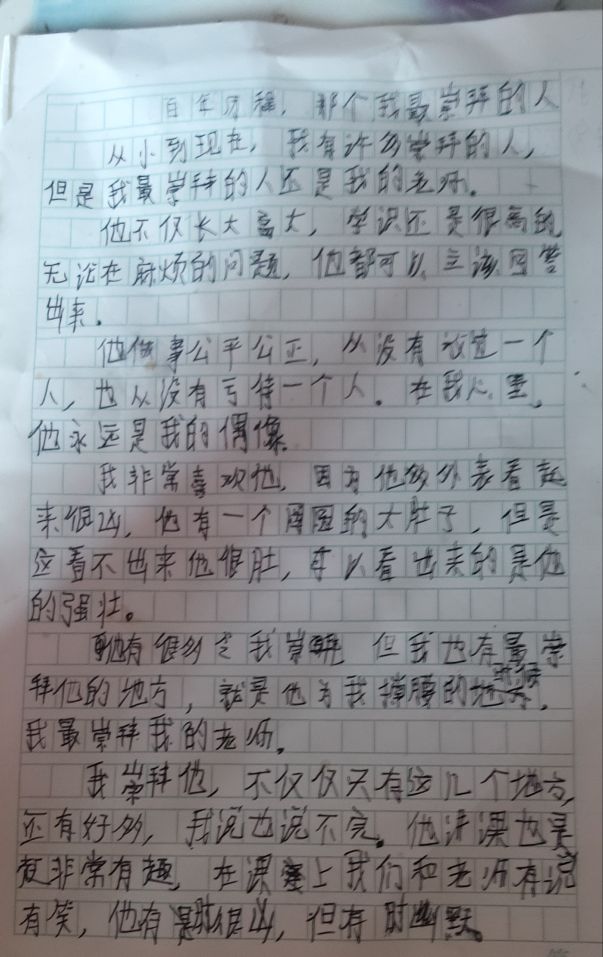 百年历程，那个我最崇拜的人
从小到现在，我有许多崇拜的人，
但是我最崇拜的人还是我的老师。
他不仅长大高大，学识还是很高的，
无论在麻烦的问题，他都可以立该回答
出来。
他做事公平公正，从没有放过一个
人，也从没有亏待一个人。在我心里，
他永远是我的偶像。
我非常喜欢他，因为他的外表看起
来很凶，他有一个圆圆的大肚子，但是
这看不出来他很肚，可以看出来的是他
的强壮。
他有很多令我崇拜 但我也有最崇
拜他的地方，就是他为我撑腰的时候，
我最崇拜我的老师。
我崇拜他，不仅仅只有这几个地方，
还有好多，我说也说不完。他讲课也是
非常有趣，在课堂上我们和老师有说
有笑，他有时很凶，但有时幽默。